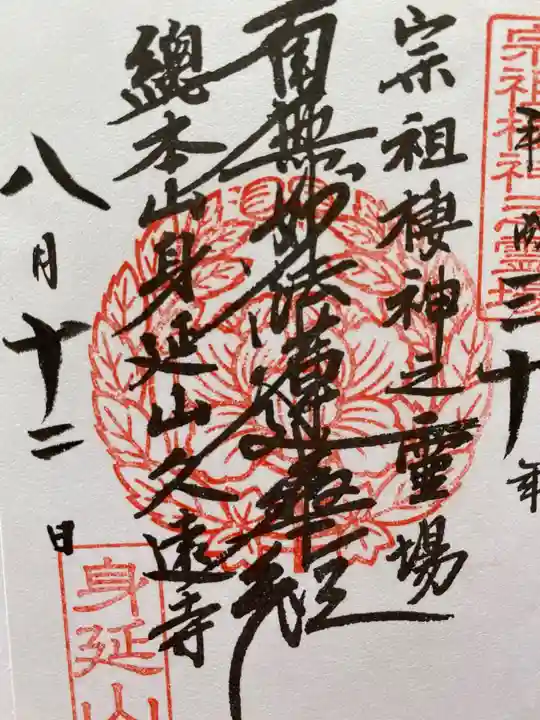 宗祖棲神之霊場
平成三十年
宗祖棲神之霊場
南無妙法蓮華経
總本山身延山久遠寺
八月十二日
身延山